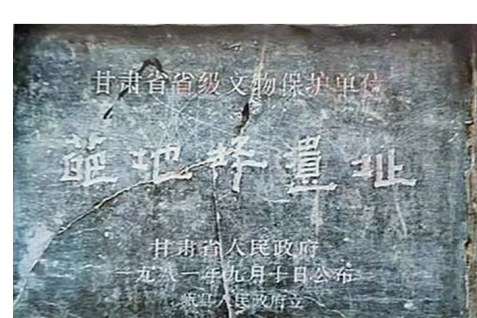 甘肃省省级文物保护单位
葩地坪遺址
甘肃省人民政府
一九八一年九月十日公布
岷县人民政府立